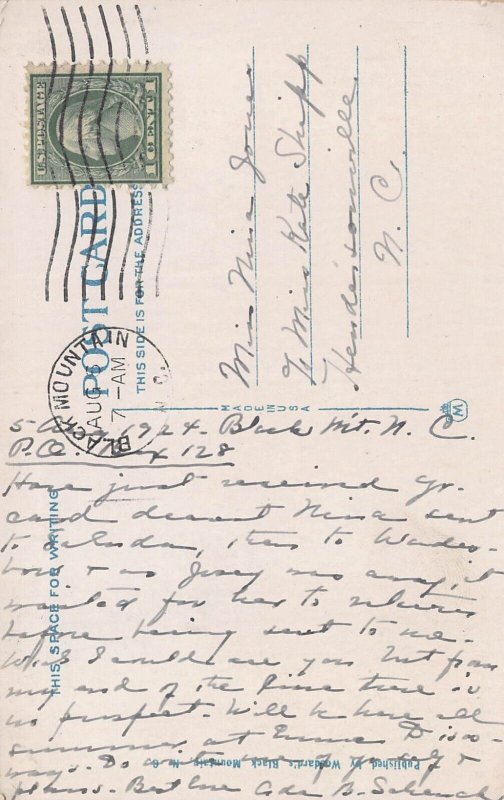 U.S. POSTAGE
1 CENT 1
BLACK MOUNTAIN
AUG 6
7-AM
N.C.
POST CARD
THIS SIDE IS FOR THE ADDRESS
Miss Nina Jones
To Miss Kate Shipp
Hendersonville
N. C.
MADE IN USA
5 Aug 1924. Black Mt. N. C.
P.O. Box 128
THIS SPACE FOR WRITING
Have just received yr.
card dearest Nina sent
to , then to Wades-
boro & as Josey was away, it
waited for her to return
before being sent to me.
Wish I could see you but from
my end of the line there is
no prospect. Will be here all
summer, at
ways. Do of yourself &
plans. Best love Ada B. Schenck
Published by Woodard's, Black Mountain, N. C.